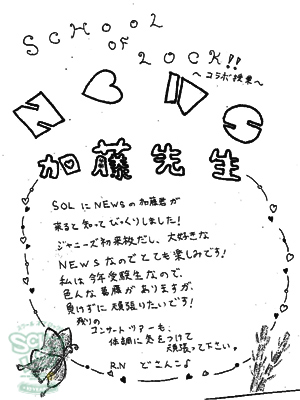 SCHOOL
OF
LOCK!!
〜コラボ授業〜
NEWS
加藤先生
SOLにNEWSの加藤君が
来ると知ってびっくりしました!
ジャニーズ初来校だし、大好きな
NEWSなのでとても楽しみです!
私は今年受験生なので、
色んな葛藤がありますが、
負けずに頑張りたいです!
残りの
コンサートツアーも、
体調に気をつけて
頑張って下さい。
R.N どさんこ♪